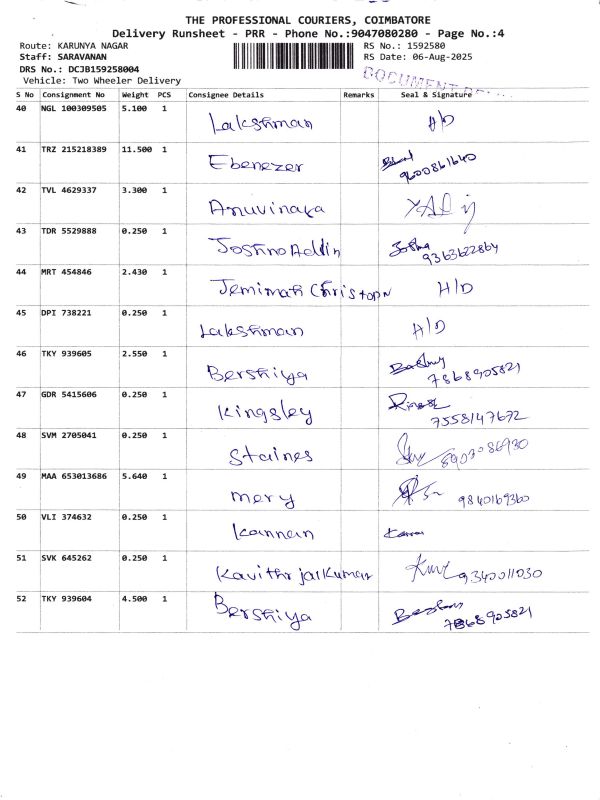 THE PROFESSIONAL COURIERS, COIMBATORE
Delivery Runsheet - PRR - Phone No.:9047080280 - Page No.:4
Route: KARUNYA NAGAR RS No.: 1592580
Staff: SARAVANAN RS Date: 06-Aug-2025
DRS No.: DCJB159258004
Vehicle: Two Wheeler Delivery
DOCUMENT
S No Consignment No Weight PCS Consignee Details Remarks Seal & Signature
40 NGL 100309505 5.100 1 Lakshman H/D
41 TRZ 215218389 11.500 1 Ebenezer
9600861640
42 TVL 4629337 3.300 1 Anuvinaya
43 TDR 5529888 0.250 1 Joshno Addin
9363622864
44 MRT 454846 2.430 1 Jemimah Christopn H/D
45 DPI 738221 0.250 1 Lakshman H/D
46 TKY 939605 2.550 1 Bershiya
7868905821
47 GDR 5415606 0.250 1 Kingsley
7558147672
48 SVM 2705041 0.250 1 Staines 8903086930
49 MAA 653013686 5.640 1 mery 9840169360
50 VLI 374632 0.250 1 Kannan
51 SVK 645262 0.250 1 Kavithr jaikumar 9340011030
52 TKY 939604 4.500 1 Bershiya
7868905821